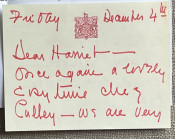 Friday December 4th
Dear Harriet—
once again a lovely
time chez
Culley — we are very